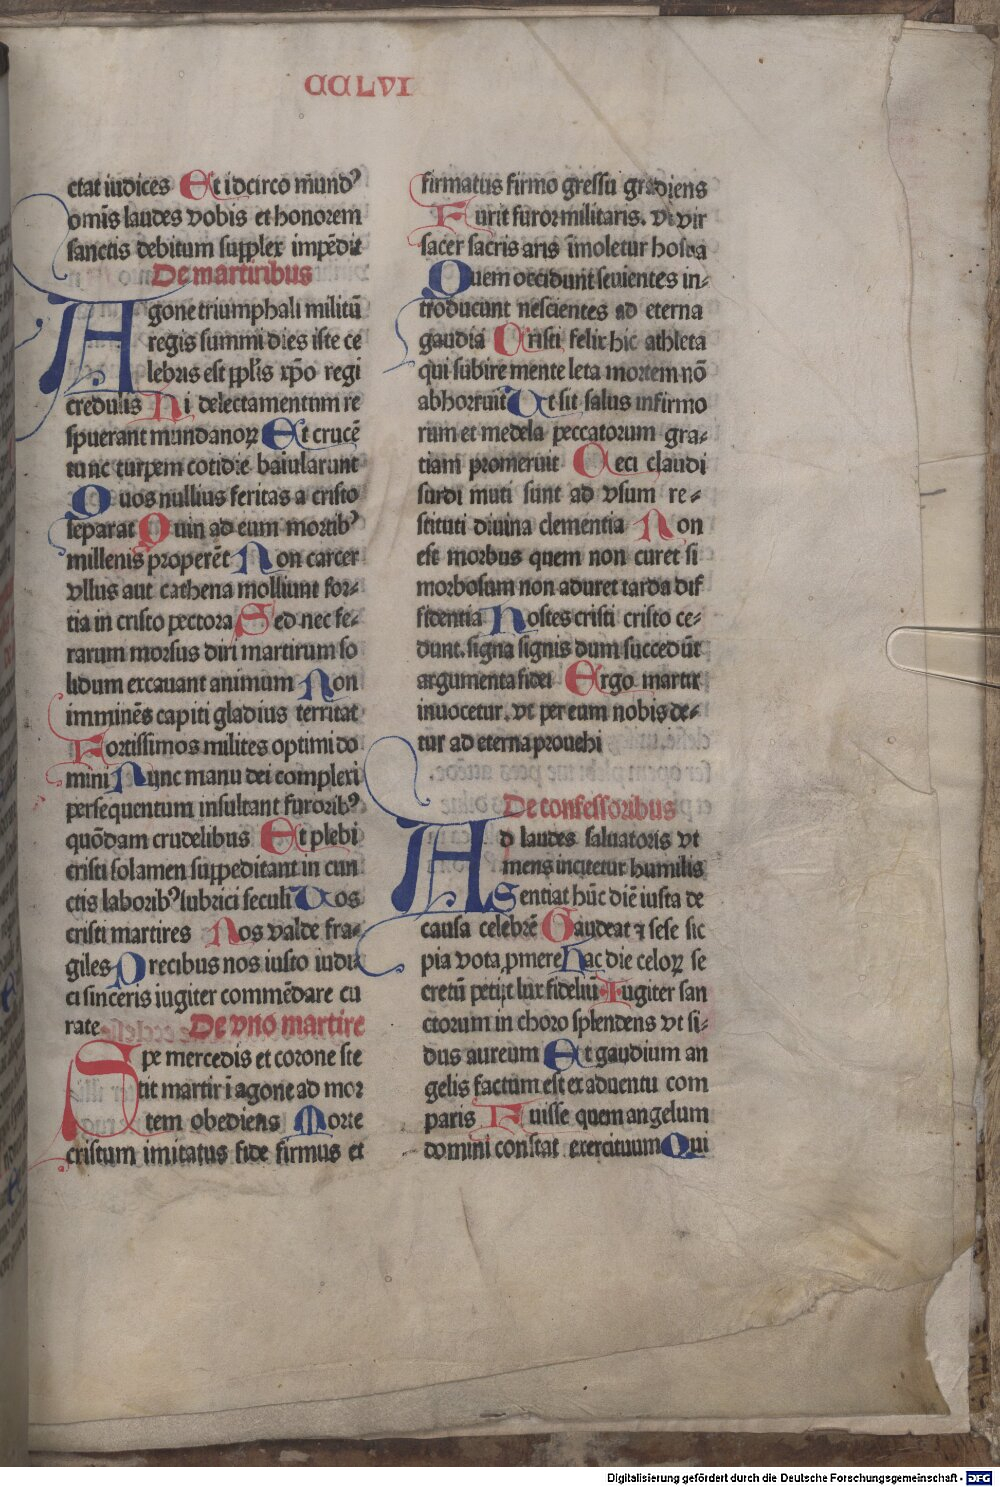 CCLVI
ctat iudices Et idcirco mund᾿
om̄s laudes vobis et honorem
sanctis debitum supplex impēdit
De martiribus
Agone triumphali militū
regis summi dies iste ce
lebris est pplīs xp̄o regi
credulis Hi delectamentum re
spuerant mundanoꝝ Et crucē
tunc turpem cotidie baiularunt
Quos nullius feritas a cristo
separat Quin ad eum mortib᾿
millenis properēt Non carcer
vllus aut cathena molliunt for-
tia in cristo pectora Sed nec fe-
rarum morsus diri martirum so
lidum excauant animum Non
imminēs capiti gladius territat
Fortissimos milites optimi do
mini Nunc manu dei complexi
persequentum insultant furorib᾿
quōdam crudelibus Et plebi
cristi solamen suppeditant in cun
ctis laborib᾿ lubrici seculi Vos
cristi martires Nos valde fra-
giles Precibus nos iusto iudi-
ci sinceris iugiter commēdare cu
rate De vno martire
Spe mercedis et corone ste
tit martir ī agone ad mor
tem obediens Morte
cristum imitatus fide firmus et
firmatus firmo gressu gradiens
Furit furor militaris. vt vir
sacer sacris aris īmoletur hostia
Quem occidunt seuientes in-
troducunt nescientes ad eterna
gaudia Cristi felix hic athleta
qui subire mente leta mortem nō
abhorruit Vt sit salus infirmo
rum et medela peccatorum gra-
tiam promeruit Ceci claudi
surdi muti sunt ad vsum re-
stituti diuina clementia Non
est morbus quem non curet si
morbosum non aduret tarda dif
fidentia Hostes cristi cristo ce-
dunt. signa signis dum succedūt
argumenta fidei Ergo martir
inuocetur. vt per eum nobis de-
tur ad eterna prouehi
De confessoribus
Ad laudes saluatoris vt
mens incitetur humilis
Sentiat hūc diē iusta de
causa celebrē Gaudeat ⁊ sese sic
pia vota ꝓmere Hac die celoꝝ se
cretū petijt lux fideliū Iugiter san
ctorum in choro splendens vt si-
dus aureum Et gaudium an
gelis factum est ex aduentu com
paris Fuisse quem angelum
domini constat exercituum Qui
Digitalisierung gefördert durch die Deutsche Forschungsgemeinschaft - DFG